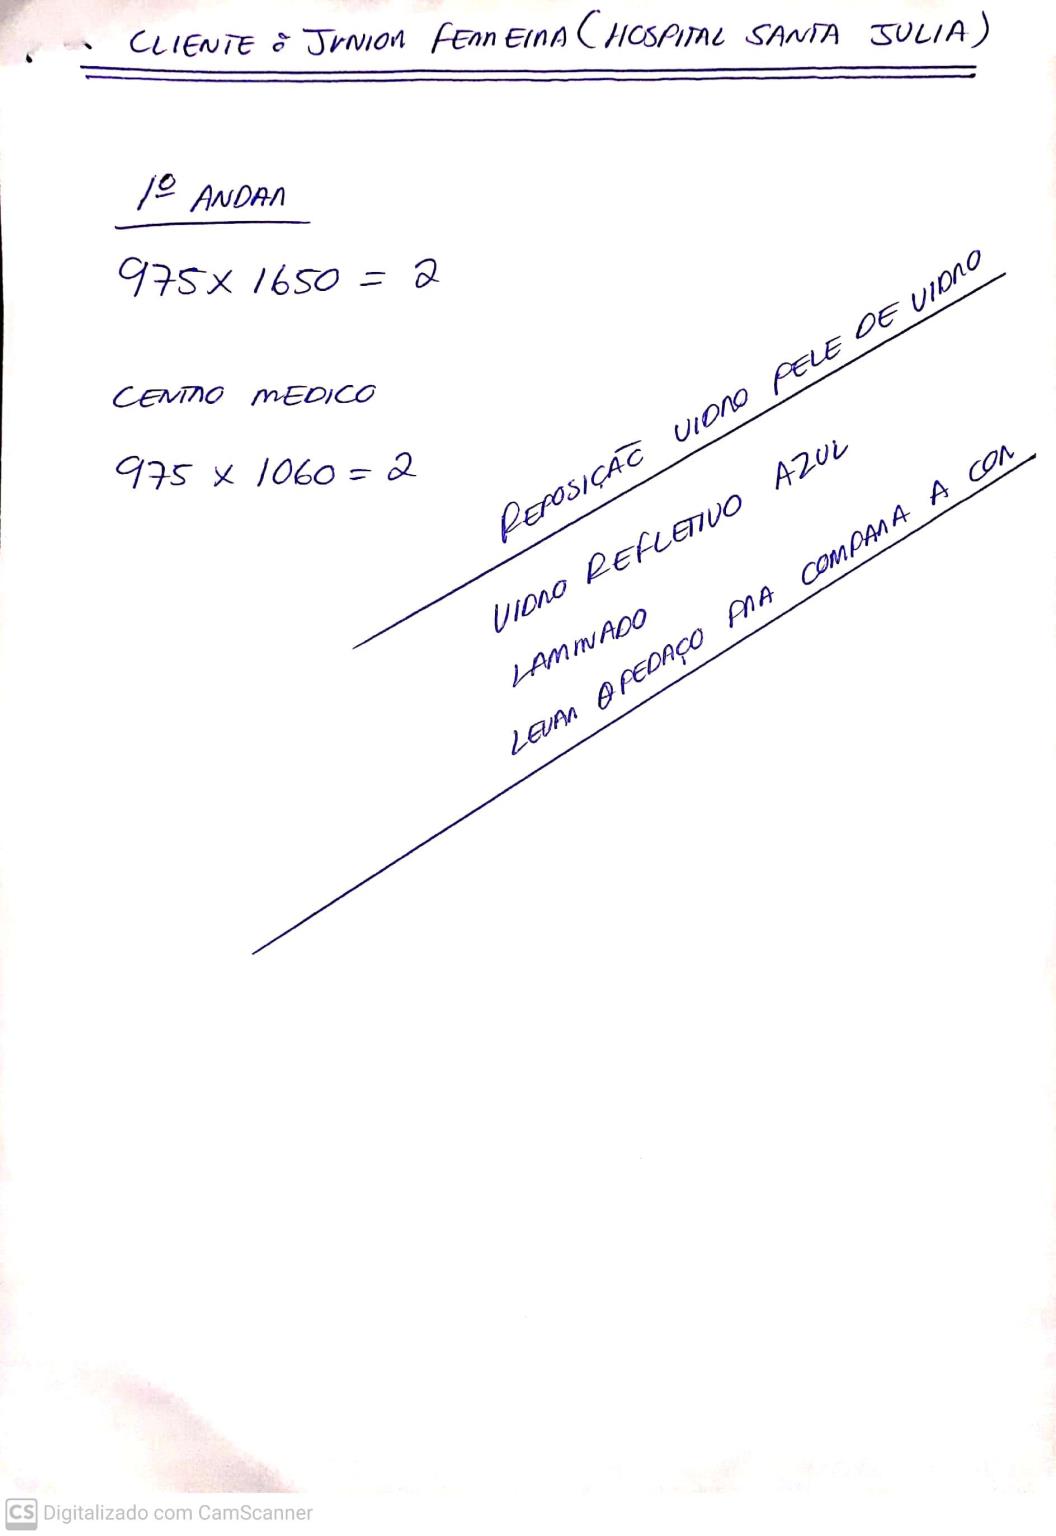 CLIENTE : JUNIOR FERREIRA (HOSPITAL SANTA JULIA)
1º ANDAR
975 X 1650 = 2
CENTRO MEDICO
975 X 1060 = 2
REPOSIÇÃO VIDRO PELE DE VIDRO
VIDRO REFLETIVO AZUL
LAMINADO
LEVAR O PEDAÇO PRA COMPARA A COR
CS Digitalizado com CamScanner